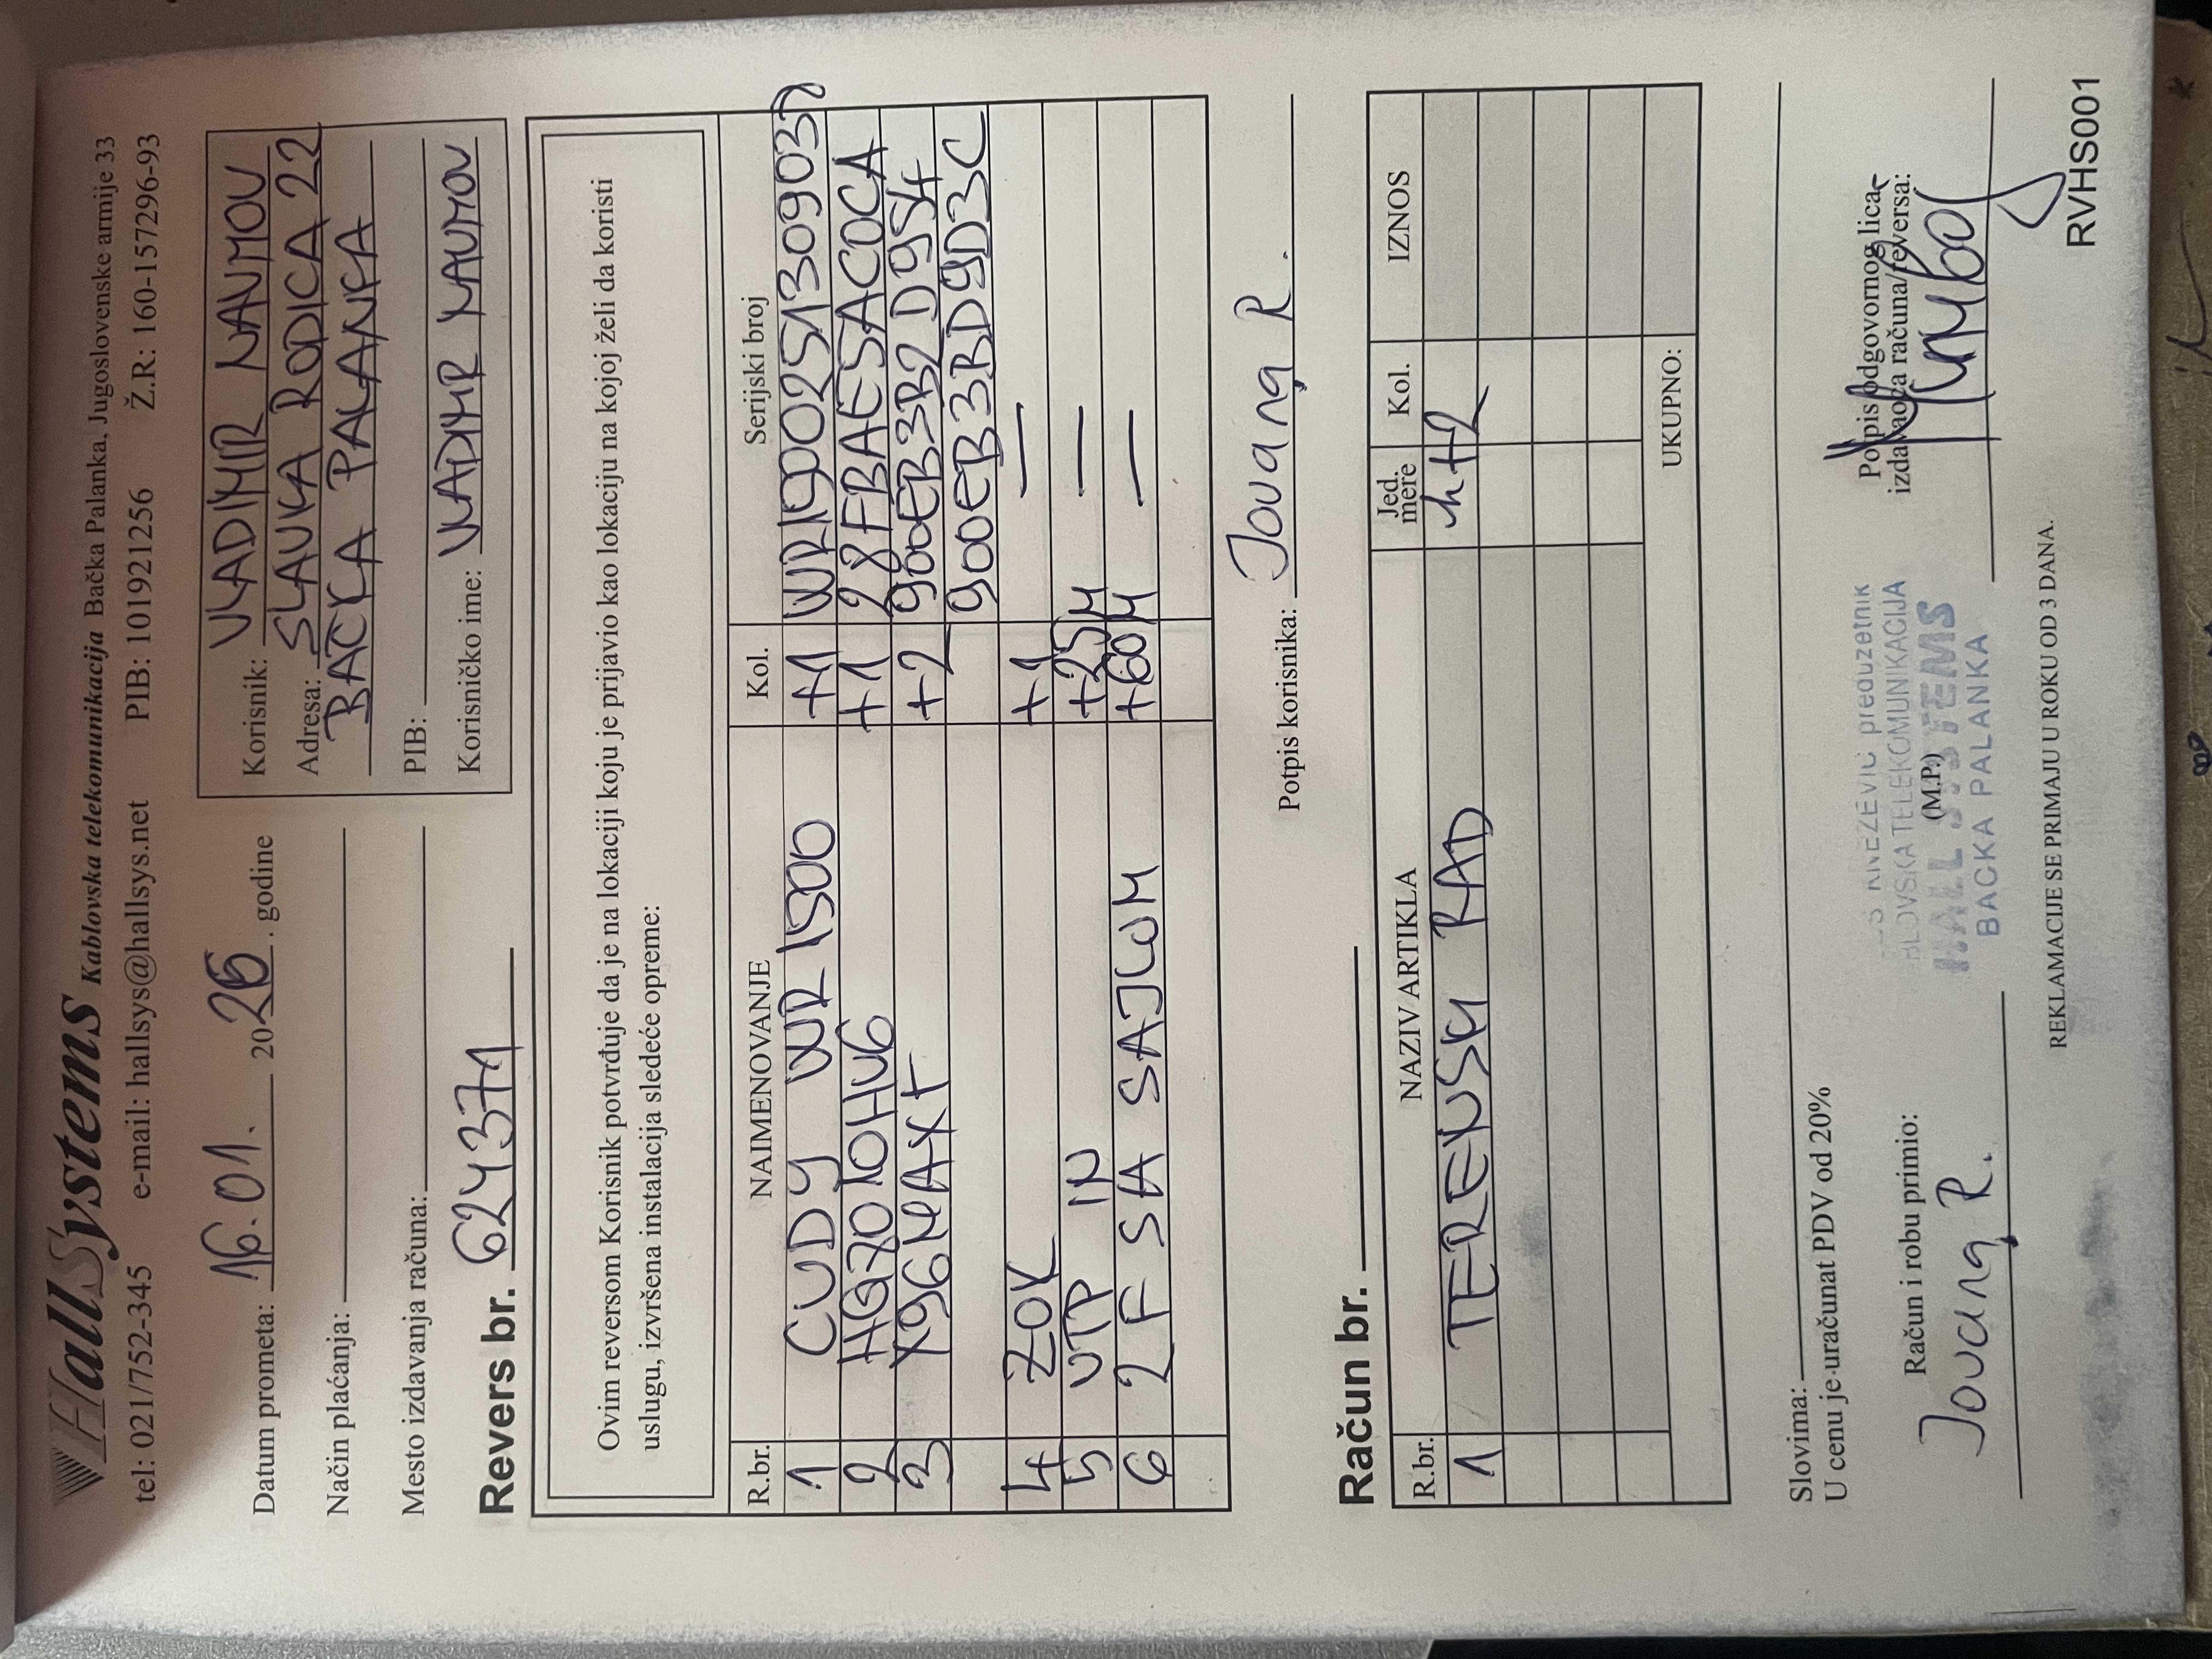 HallSystems Kablovska telekomunikacija Bačka Palanka, Jugoslovenske armije 33
tel: 021/752-345 e-mail: hallsys@hallsys.net PIB: 101921256 Ž.R: 160-157296-93
Datum prometa: 16.01. 2026. godine
Način plaćanja:
Mesto izdavanja računa:
Korisnik: VLADIMIR NAUMOV
Adresa: SLAVKA RODICA 22
BAČKA PALANKA
PIB:
Korisničko ime: VLADIMIR NAUMOV
Revers br. 624371
Ovim reversom Korisnik potvrđuje da je na lokaciji koju je prijavio kao lokaciju na kojoj želi da koristi
uslugu, izvršena instalacija sledeće opreme:
R.br. NAIMENOVANJE Kol. Serijski broj
1 CUDY WR 1500 +1
2 HG7010HV6 +1 28FBAE5AC0CA
3 X96MAXT +2 900EB3B2D954
900EB3BD9D3C
4 ZOK +1 —
5 UTP IN +25M —
6 2F SA SAJLOM +60M —
Potpis korisnika: Jovana R.
Račun br.
R.br. NAZIV ARTIKLA Jed. mere Kol. IZNOS
1 TERENSKI RAD h +2
UKUPNO:
Slovima:
U cenu je uračunat PDV od 20%
Račun i robu primio:
Jovana R.
KNEŽEVIĆ preduzetnik
TELEKOMUNIKACIJA
HALL SYSTEMS
BAČKA PALANKA
(M.P.)
Potpis odgovornog lica
izdavaoca računa/reversa:
REKLAMACIJE SE PRIMAJU U ROKU OD 3 DANA.
RVHS001